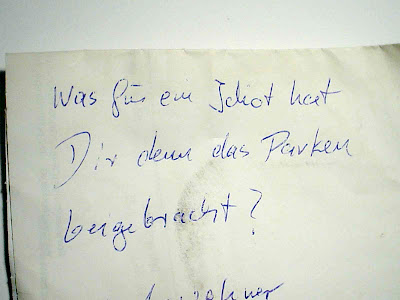 Was für ein Idiot hat
Dir denn das Parken
beigebracht?